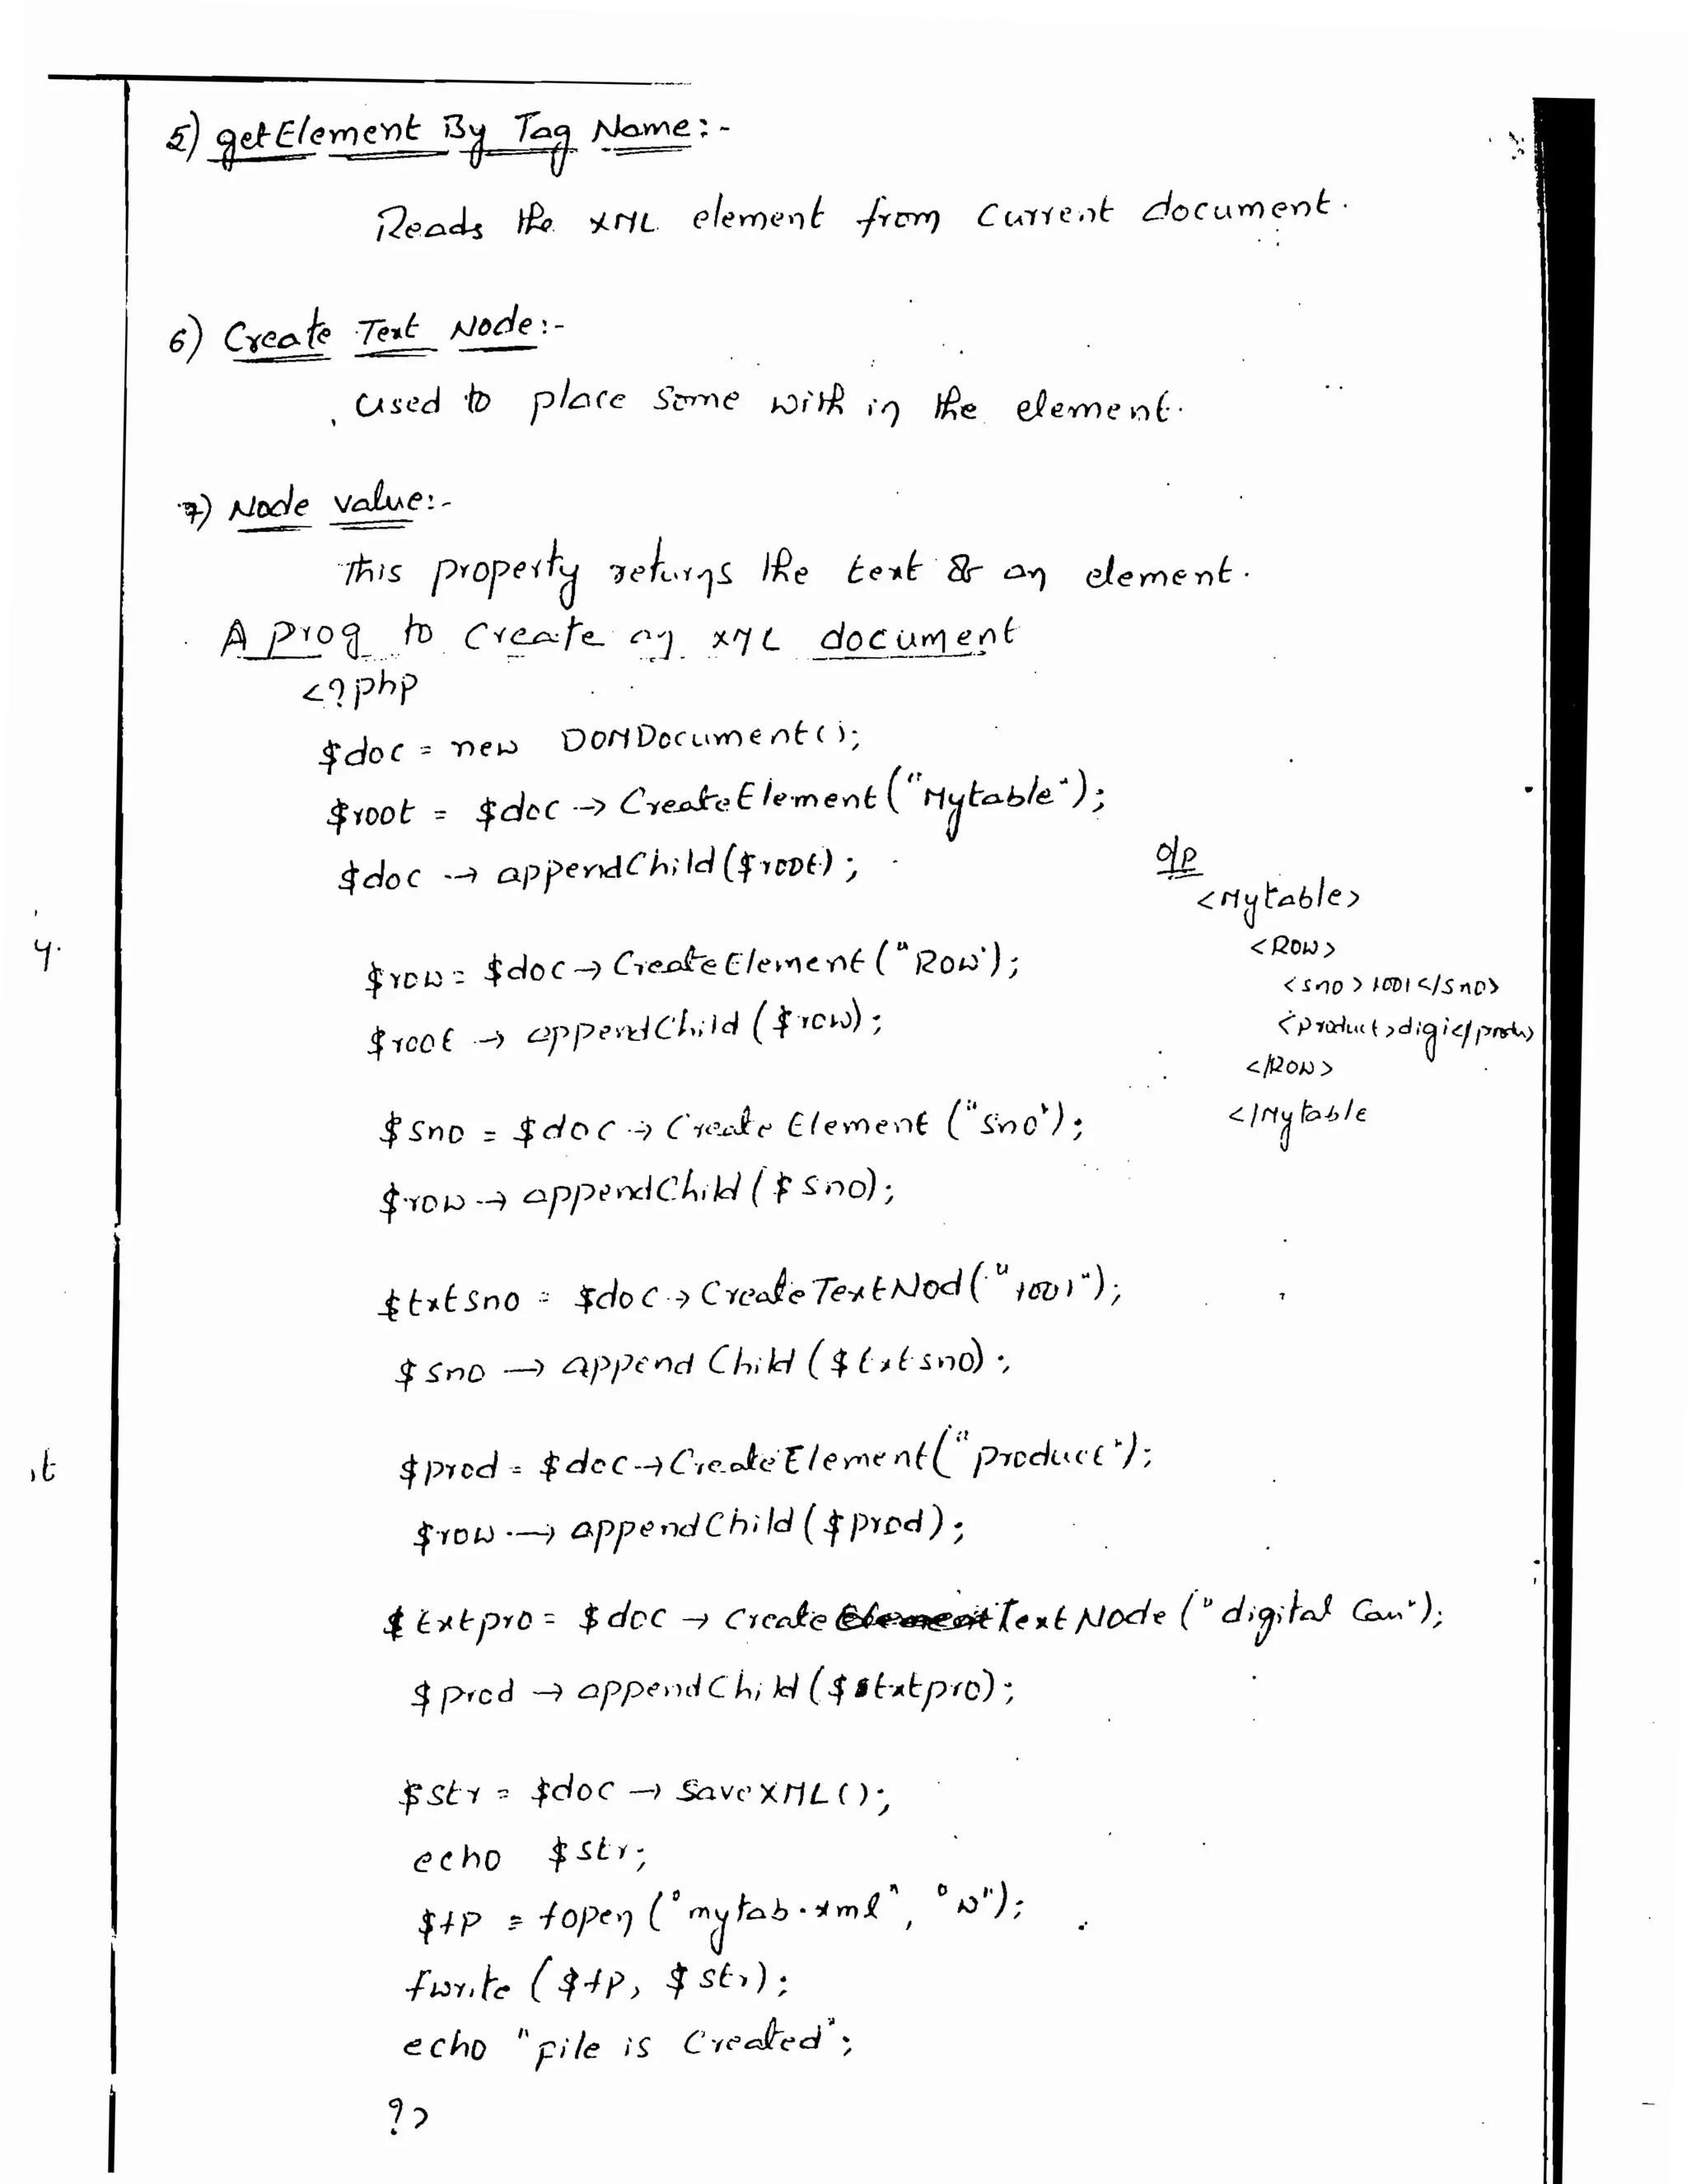 5) getElement By Tag Name:-
Reads the XML element from current document.
6) Create Text Node:-
Used to place some with in the element.
7) Node value:-
This property returns the text & an element.
A Prog to create an XML document
<?php
$doc = new DOMDocument();
$root = $doc → CreateElement("Mytable");
$doc → appendChild($root);
$row = $doc → CreateElement("Row");
$root → appendChild($row);
$sno = $doc → Create Element ("sno");
$row → appendChild($sno);
$txtsno = $doc → CreateTextNod("1001");
$sno → append Child($txtsno);
$prod = $doc → CreateElement("product");
$row → appendChild($prod);
$txtpro = $doc → Create TextNode ("digital Cam");
$prod → appendChild($txtpro);
$str = $doc → SaveXML();
echo $str;
$fp = fopen("mytab.xml", "w");
fwrite ($fp, $str);
echo "File is Created";
?>
o/p
<Mytable>
<ROW>
<sno>1001</sno>
<product>digi</produ>
</ROW>
</Mytable
y.
it